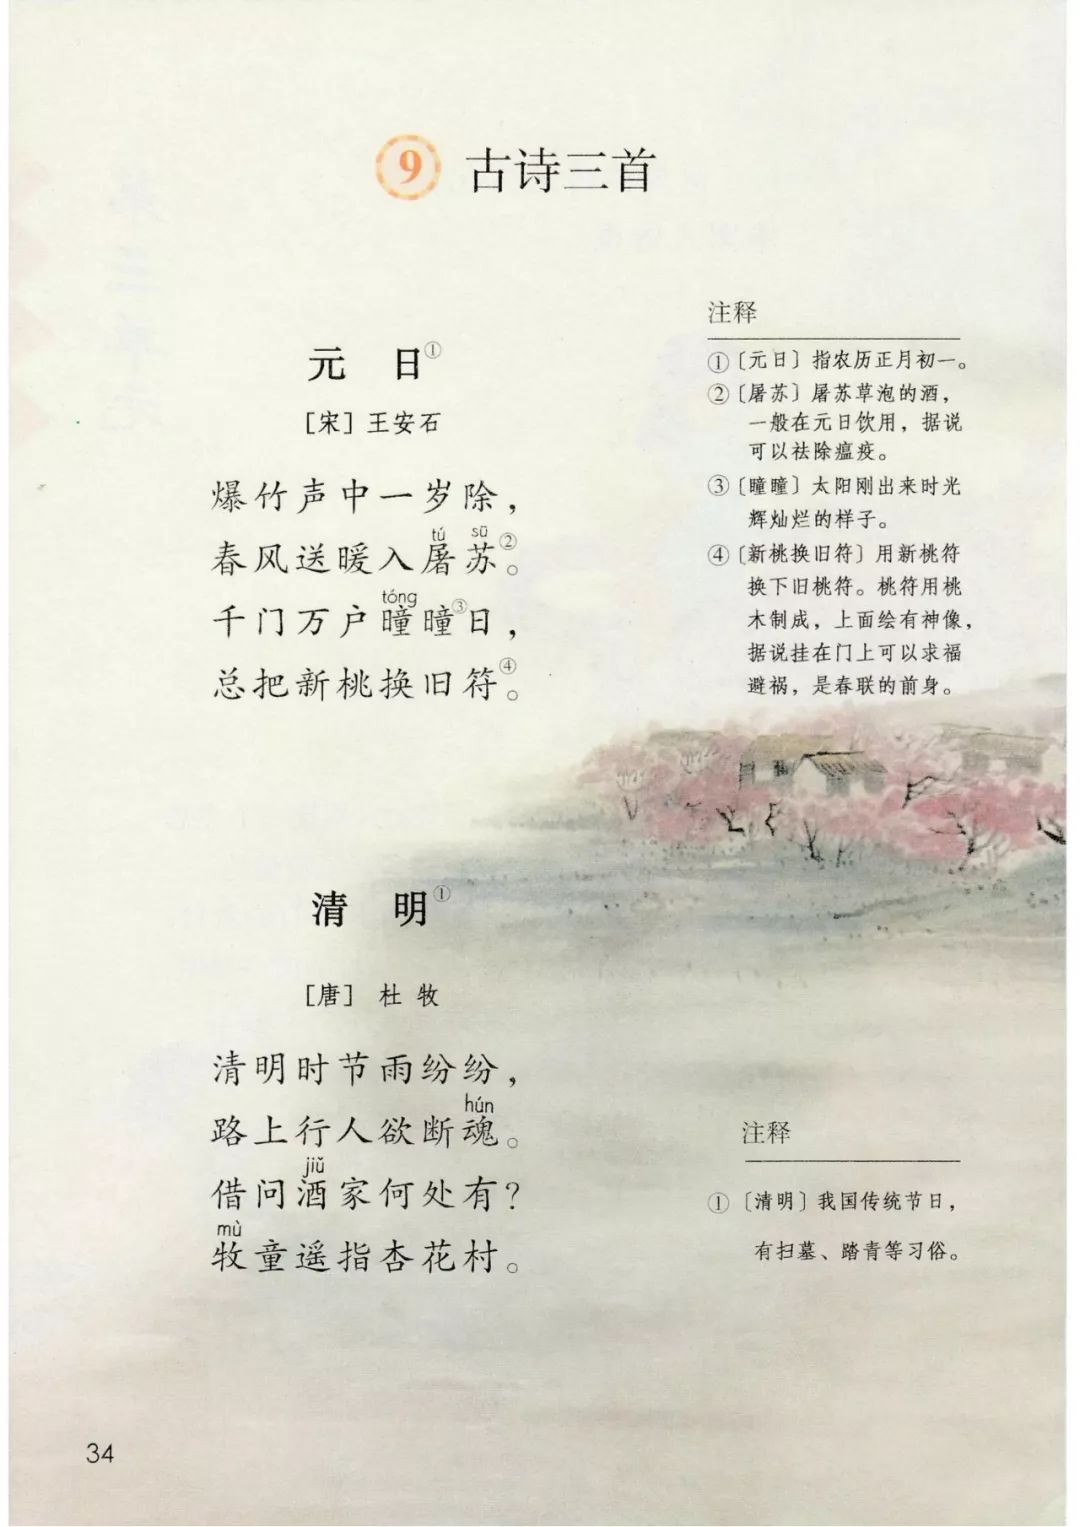 9 古诗三首
元 日①
［宋］王安石
爆竹声中一岁除，
tú sū
春风送暖入屠苏②。
tóng
千门万户曈曈③日，
总把新桃换旧符④。
注释
①〔元日〕指农历正月初一。
②〔屠苏〕屠苏草泡的酒，
一般在元日饮用，据说
可以祛除瘟疫。
③〔曈曈〕太阳刚出来时光
辉灿烂的样子。
④〔新桃换旧符〕用新桃符
换下旧桃符。桃符用桃
木制成，上面绘有神像，
据说挂在门上可以求福
避祸，是春联的前身。
清 明①
［唐］ 杜 牧
清明时节雨纷纷，
hún
路上行人欲断魂。
jiǔ
借问酒家何处有？
mù
牧童遥指杏花村。
注释
①〔清明〕我国传统节日，
有扫墓、踏青等习俗。
34